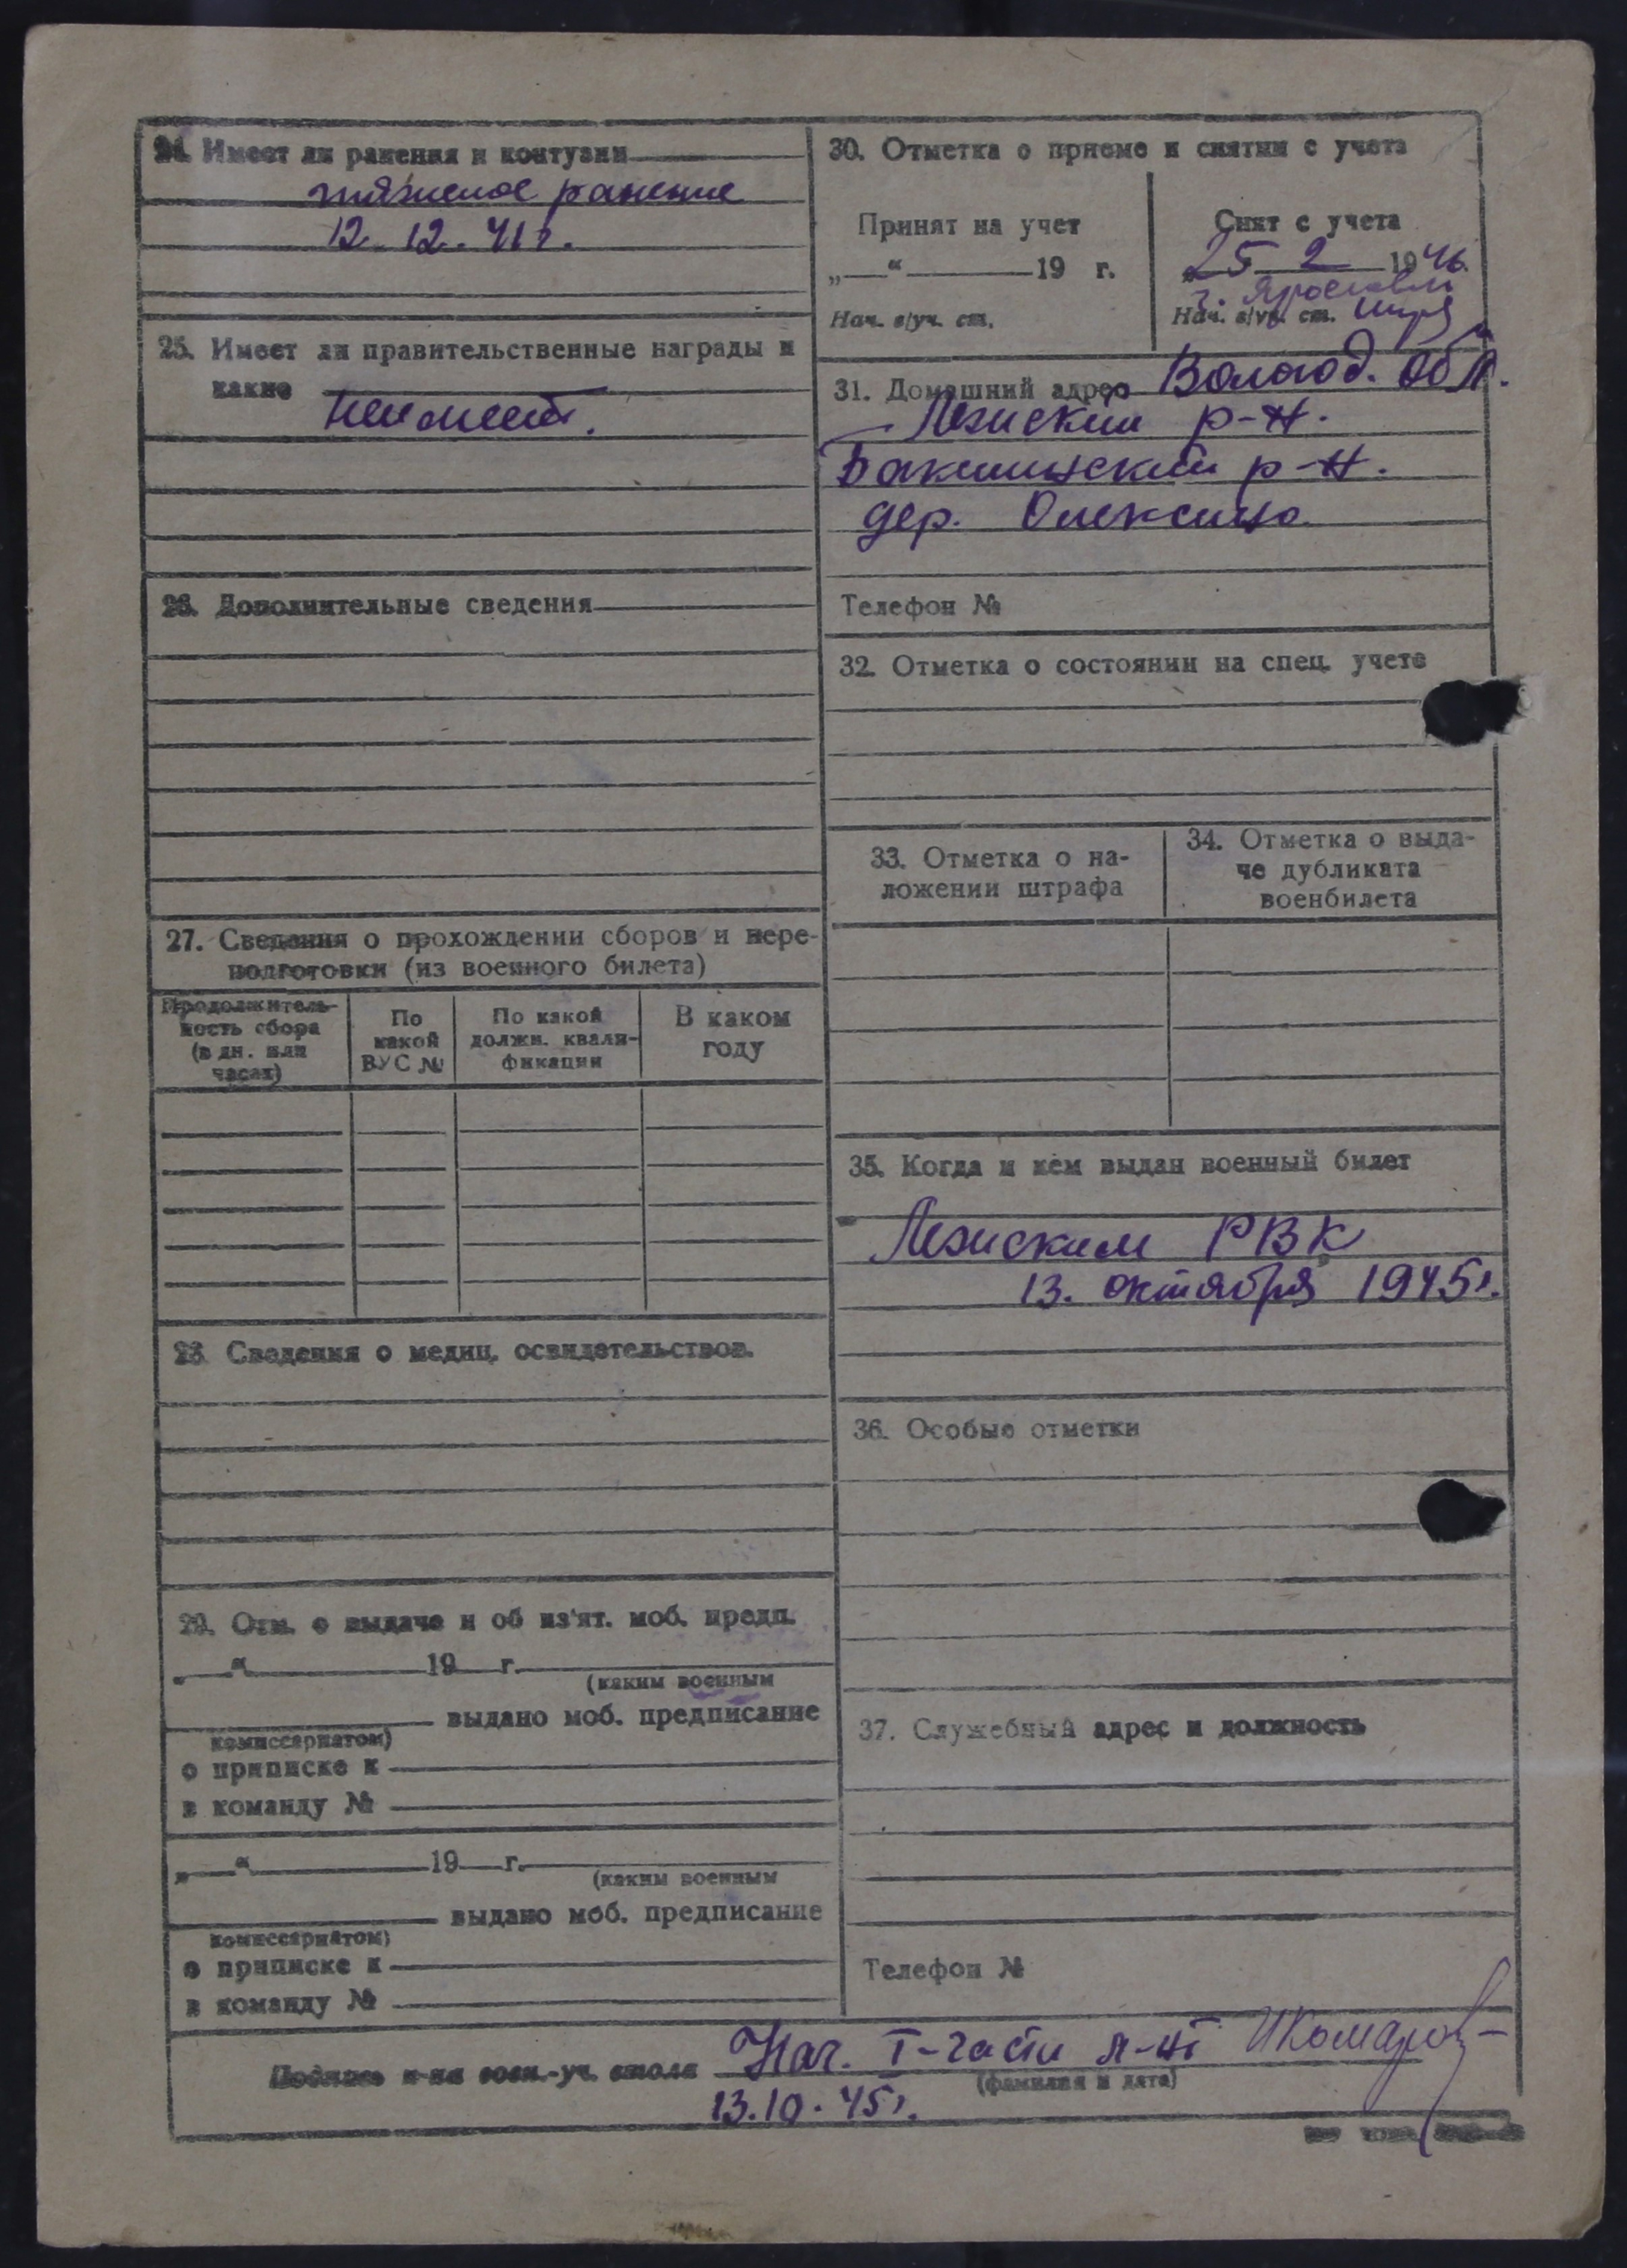 24. Имеет ли ранения и контузии
тяжелое ранение
12. 12. 41 г.
25. Имеет ли правительственные награды и
какие
неимеет.
26. Дополнительные сведения
27. Сведения о прохождении сборов и пере-
подготовки (из военного билета)
Продолжитель-
ность сбора
(в дн. или
часах)
По
какой
ВУС №
По какой
должн. квали-
фикации
В каком
году
28. Сведения о медиц. освидетельствов.
29. Отм. о выдаче и об из'ят. моб. предп.
„ “ 19 г.
(каким военным
выдано моб. предписание
комиссариатом)
о приписке к
в команду №
„ “ 19 г.
(каким военным
выдано моб. предписание
комиссариатом)
о приписке к
в команду №
30. Отметка о приеме и снятии с учета
Принят на учет
„ “ 19 г.
Нач. в/уч. ст.
Снят с учета
25 2 1946
г. Ярославль
Нач. в/уч. ст.
31. Домашний адрес Вологод. обл.
Лежский р-н.
р-н.
дер. Олексино
Телефон №
32. Отметка о состоянии на спец. учете
33. Отметка о на-
ложении штрафа
34. Отметка о выда-
че дубликата
военбилета
35. Когда и кем выдан военный билет
Лежским РВК
13. октября 1945 г.
36. Особые отметки
37. Служебный адрес и должность
Телефон №
Подпись н-ка воен.-уч. стола Нач. I-части л-нт ИКомаров
(фамилия и дата)
13.10.45 г.